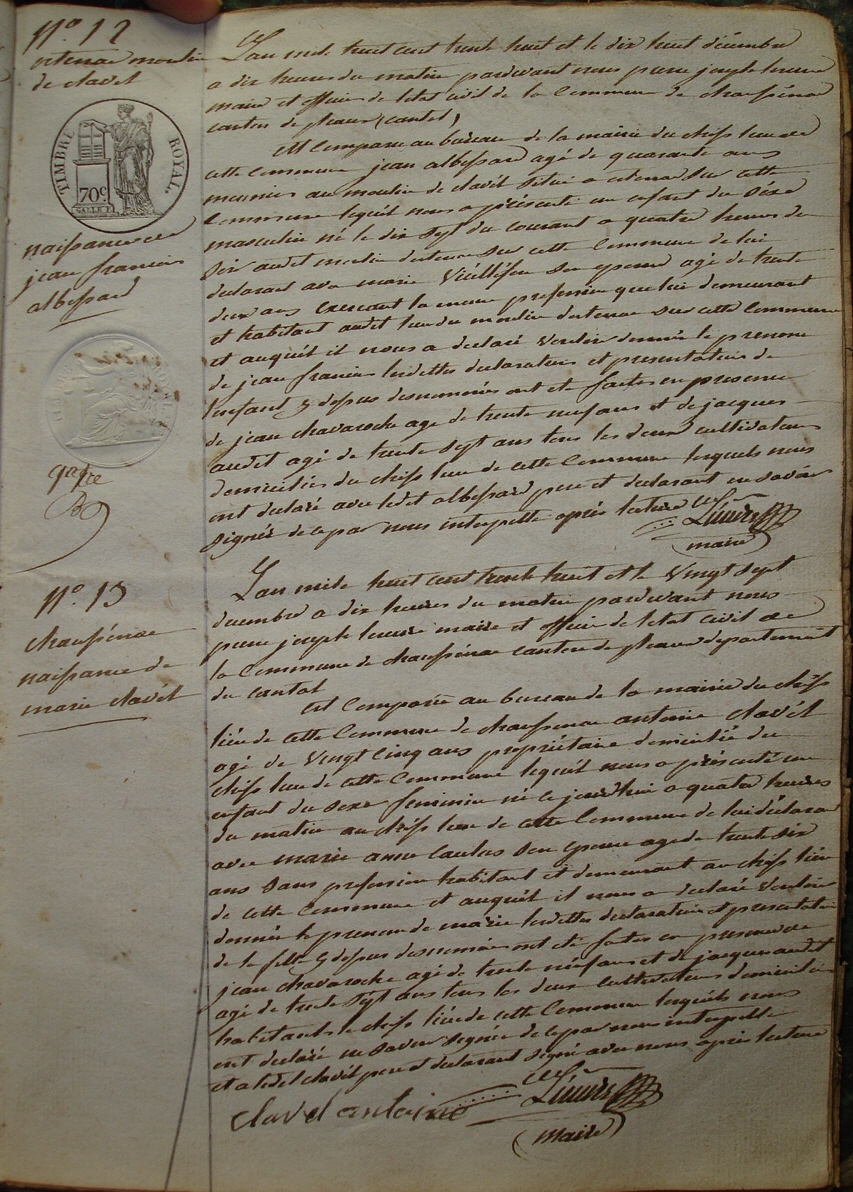 N.º 12
ostenac moulin
de clavel
TIMBRE ROYAL.
70c
naissance de
jean francois
albessard
N.º 13
chaussenac
naissance de
marie clavel
L'an mile huit cent trente huit et le dix huit décembre
a dix heures du matin pardevant nous pierre joseph
maire et officier de l'état civil de la Commune de chaussenac
canton de pleaux (cantal)
est Comparu au bureau de la mairie du cheff lieu de
cette Commune jean albessard agé de quarante ans
meunier au moulin de clavel situé a ostenac sur cette
Commune lequel nous a présenté un enfant du Sexe
masculin né le dix Sept du courant a quatre heures du
Soir audit moulin dostenac sur cette Commune de lui
declarant avec marie Son epouse agé de trente
deux ans exercant la meme profession que lui demeurant
et habitant audit lieu du moulin dostenac sur cette Commune
et auquel il nous a declaré vouloir donner le prenom
de jean francois lesdittes declaration et presentation de
l'enfant cy dessus denommés ont eté faites en presence
de jean chavaroche agé de trente neuf ans et de jacques
audet agé de trente Sept ans tous les deux cultivateurs
domiciliés du cheff lieu de cette Commune lesquels nous
ont déclaré avec ledit albessard pere et declarant ne savoir
signer de ce par nous interpellé après lecture
maire
L'an mile huit cent trente huit et le vingt Sept
decembre a dix heures du matin pardevant nous
pierre joseph maire et officier de l'etat civil de
la Commune de chaussenac canton de pleaux departement
du cantal
est Comparu au bureau de la mairie du cheff
lieu de cette Commune de chaussenac antoine clavel
agé de vingt Cinq ans propriétaire domicilié du
cheff lieu de cette Commune lequel nous a présenté un
enfant du Sexe feminin né ce jourdhui a quatre heures
du matin au cheff lieu de cette Commune de lui déclarant
avec marie anne Son epouse agé de trente Six
ans Sans profession habitant et demeurant au cheff lieu
de cette Commune et auquel il nous a declaré vouloir
donner le prenom de marie lesdittes declaration et presentation
de la fille cy dessus denommée ont eté faites en presence de
jean chavaroche agé de trente neuf ans et de jacques audet
agé de trente Sept ans tous les deux cultivateurs domiciliés
habitants le cheff lieu de cette Commune lesquels nous
ont declaré ne savoir signer de ce par nous interpellé
et a ledit clavel pere et declarant signé avec nous après lecture
clavel antoine
maire